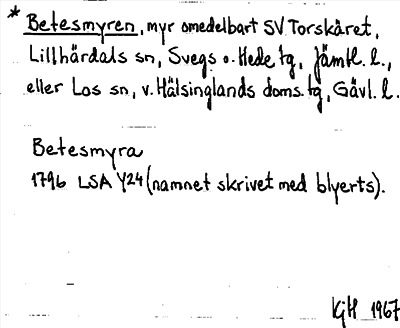 * Betesmyren, myr omedelbart SV Torskåret,
Lillhärdals sn, Svegs o. Hede tg, Jämtl. l.,
eller Los sn, v. Hälsinglands doms. tg, Gävl. l.
Betesmyra
1796 LSA Y24 (namnet skrivet med blyerts).
KjH 1967